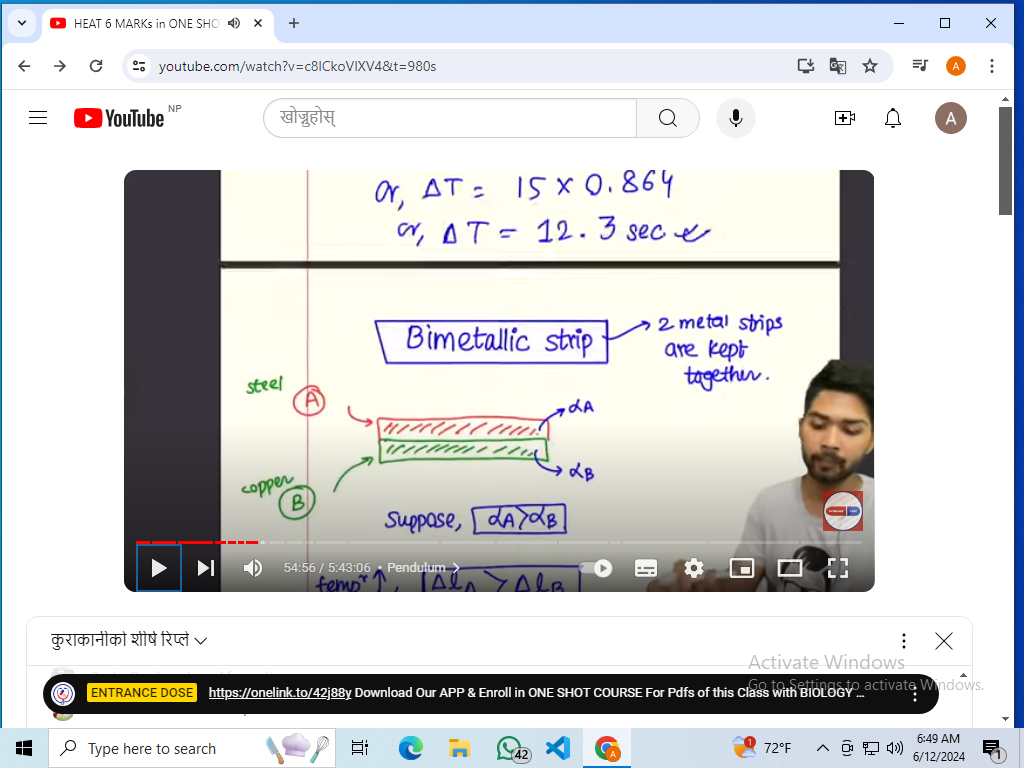 HEAT 6 MARKs in ONE SHO
youtube.com/watch?v=c8lCkoVlXV4&t=980s
A
YouTube NP
खोज्नुहोस्
A
or, ΔT = 15 × 0.864
or, ΔT = 12.3 sec
Bimetallic strip
2 metal strips
are kept
together.
steel
A
αA
αB
copper
B
Suppose, αA>αB
54:56 / 5:43:06 • Pendulum
tempr ↑, ΔlA > ΔlB
कुराकानीको शीर्ष रिप्ले
Activate Windows
Go to Settings to activate Windows.
ENTRANCE DOSE https://onelink.to/42j88y Download Our APP & Enroll in ONE SHOT COURSE For Pdfs of this Class with BIOLOGY ...
Type here to search
42
A
1
72°F
6:49 AM
6/12/2024
1